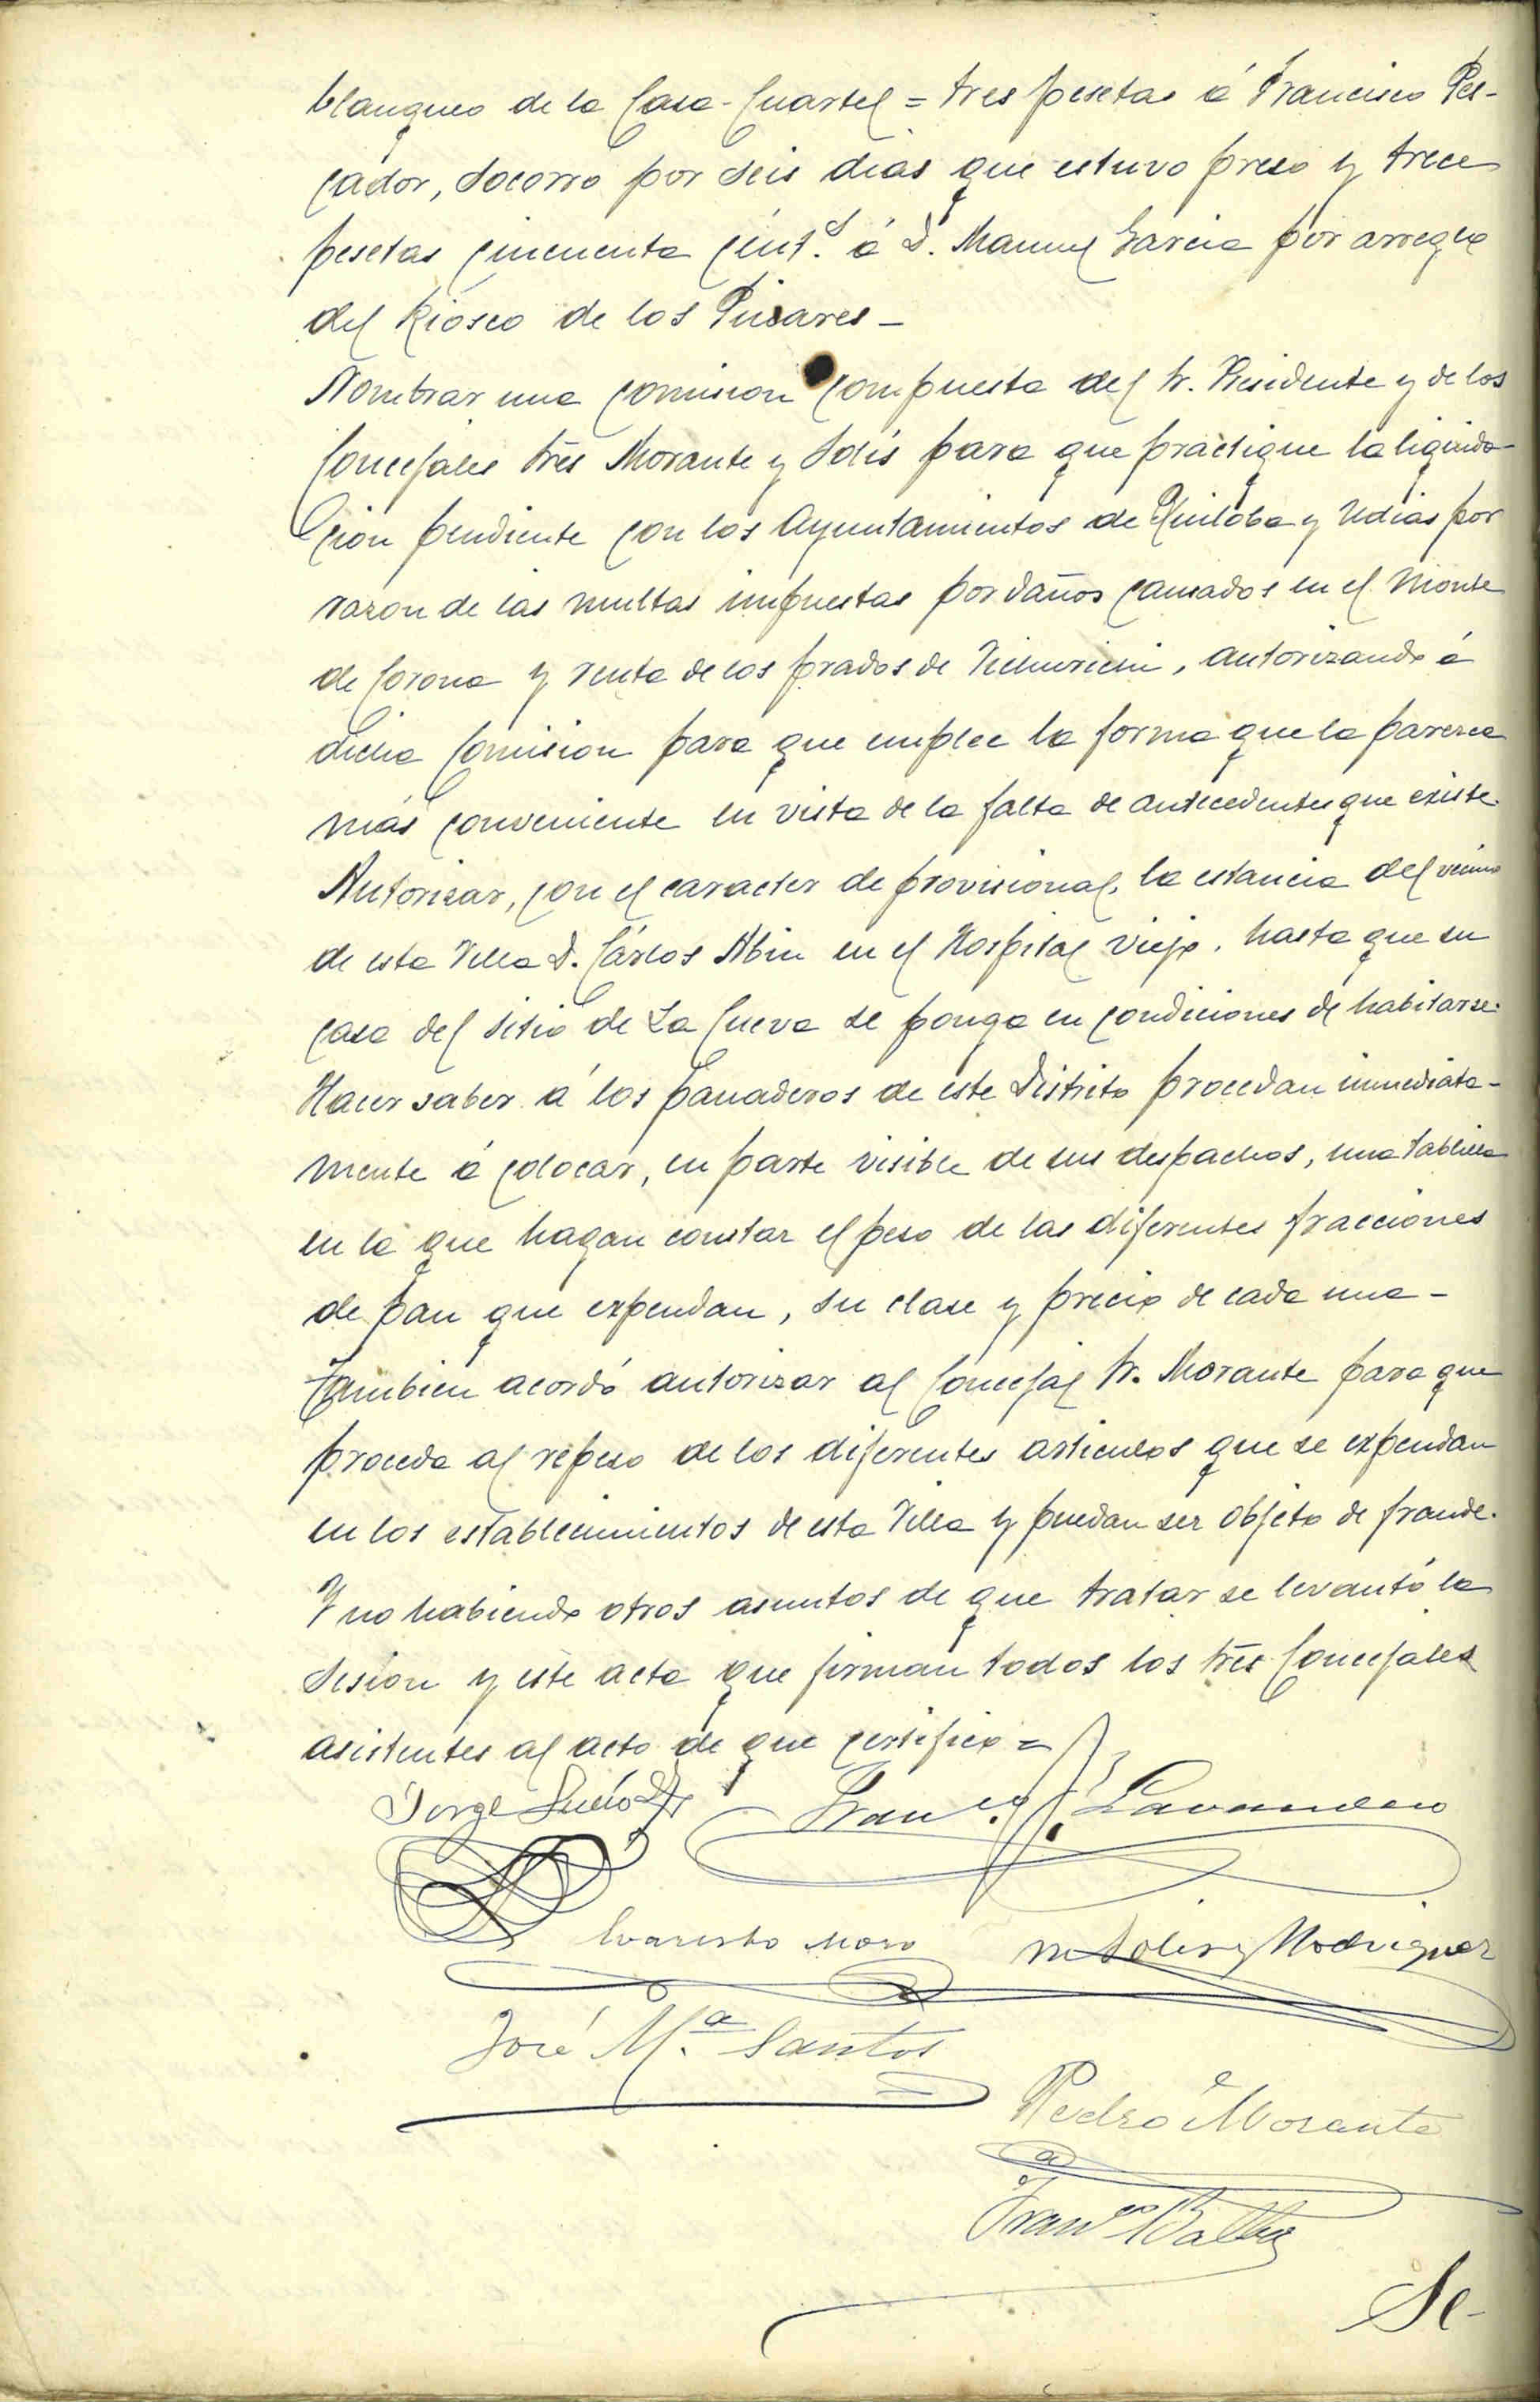 blanqueo de la Casa-Cuartel = tres pesetas á Francisco Pes-
cador, socorro por seis dias que estuvo preso y trece
pesetas cincuenta cént.s á D. Manuel Garcia por arreglo
del Kiosco de los Pinares -
Nombrar una comision compuesta del Sr. Presidente y de los
Concejales Sres Morante y Solis para que practique la liquida-
cion pendiente con los Ayuntamientos de Ruiloba y Udias por
razon de las multas impuestas por daños causados en el monte
de Corona y renta de los prados de autorizando á
dicha Comision para que emplee la forma que la parezca
más conveniente en vista de la falta de antecedentes que existe.
Autorizar, con el caracter de provisional, la estancia del vecino
de esta Villa D. Cárlos Abin en el Hospital viejo, hasta que su
casa del sitio de La Cueva se ponga en condiciones de habitarse.
Hacer saber á los panaderos de este Distrito procedan inmediata-
mente á colocar, en parte visible de sus despachos, una tablilla
en la que hagan constar el peso de las diferentes fracciones
de pan que expendan, su clase y precio de cada una -
Tambien acordó autorizar al Concejal Sr. Morante para que
proceda al repeso de los diferentes articulos que se expendan
en los establecimientos de esta Villa y puedan ser objeto de fraude.
Y no habiendo otros asuntos de que tratar se levantó la
sesion y este acta que firman todos los Sres Concejales
asistentes al acto de que certifico =
Jorge Franco. Lavandero
Evaristo Moro M Solis y Rodriguez
José M.a Santos
Pedro Morante
Franco
Se-